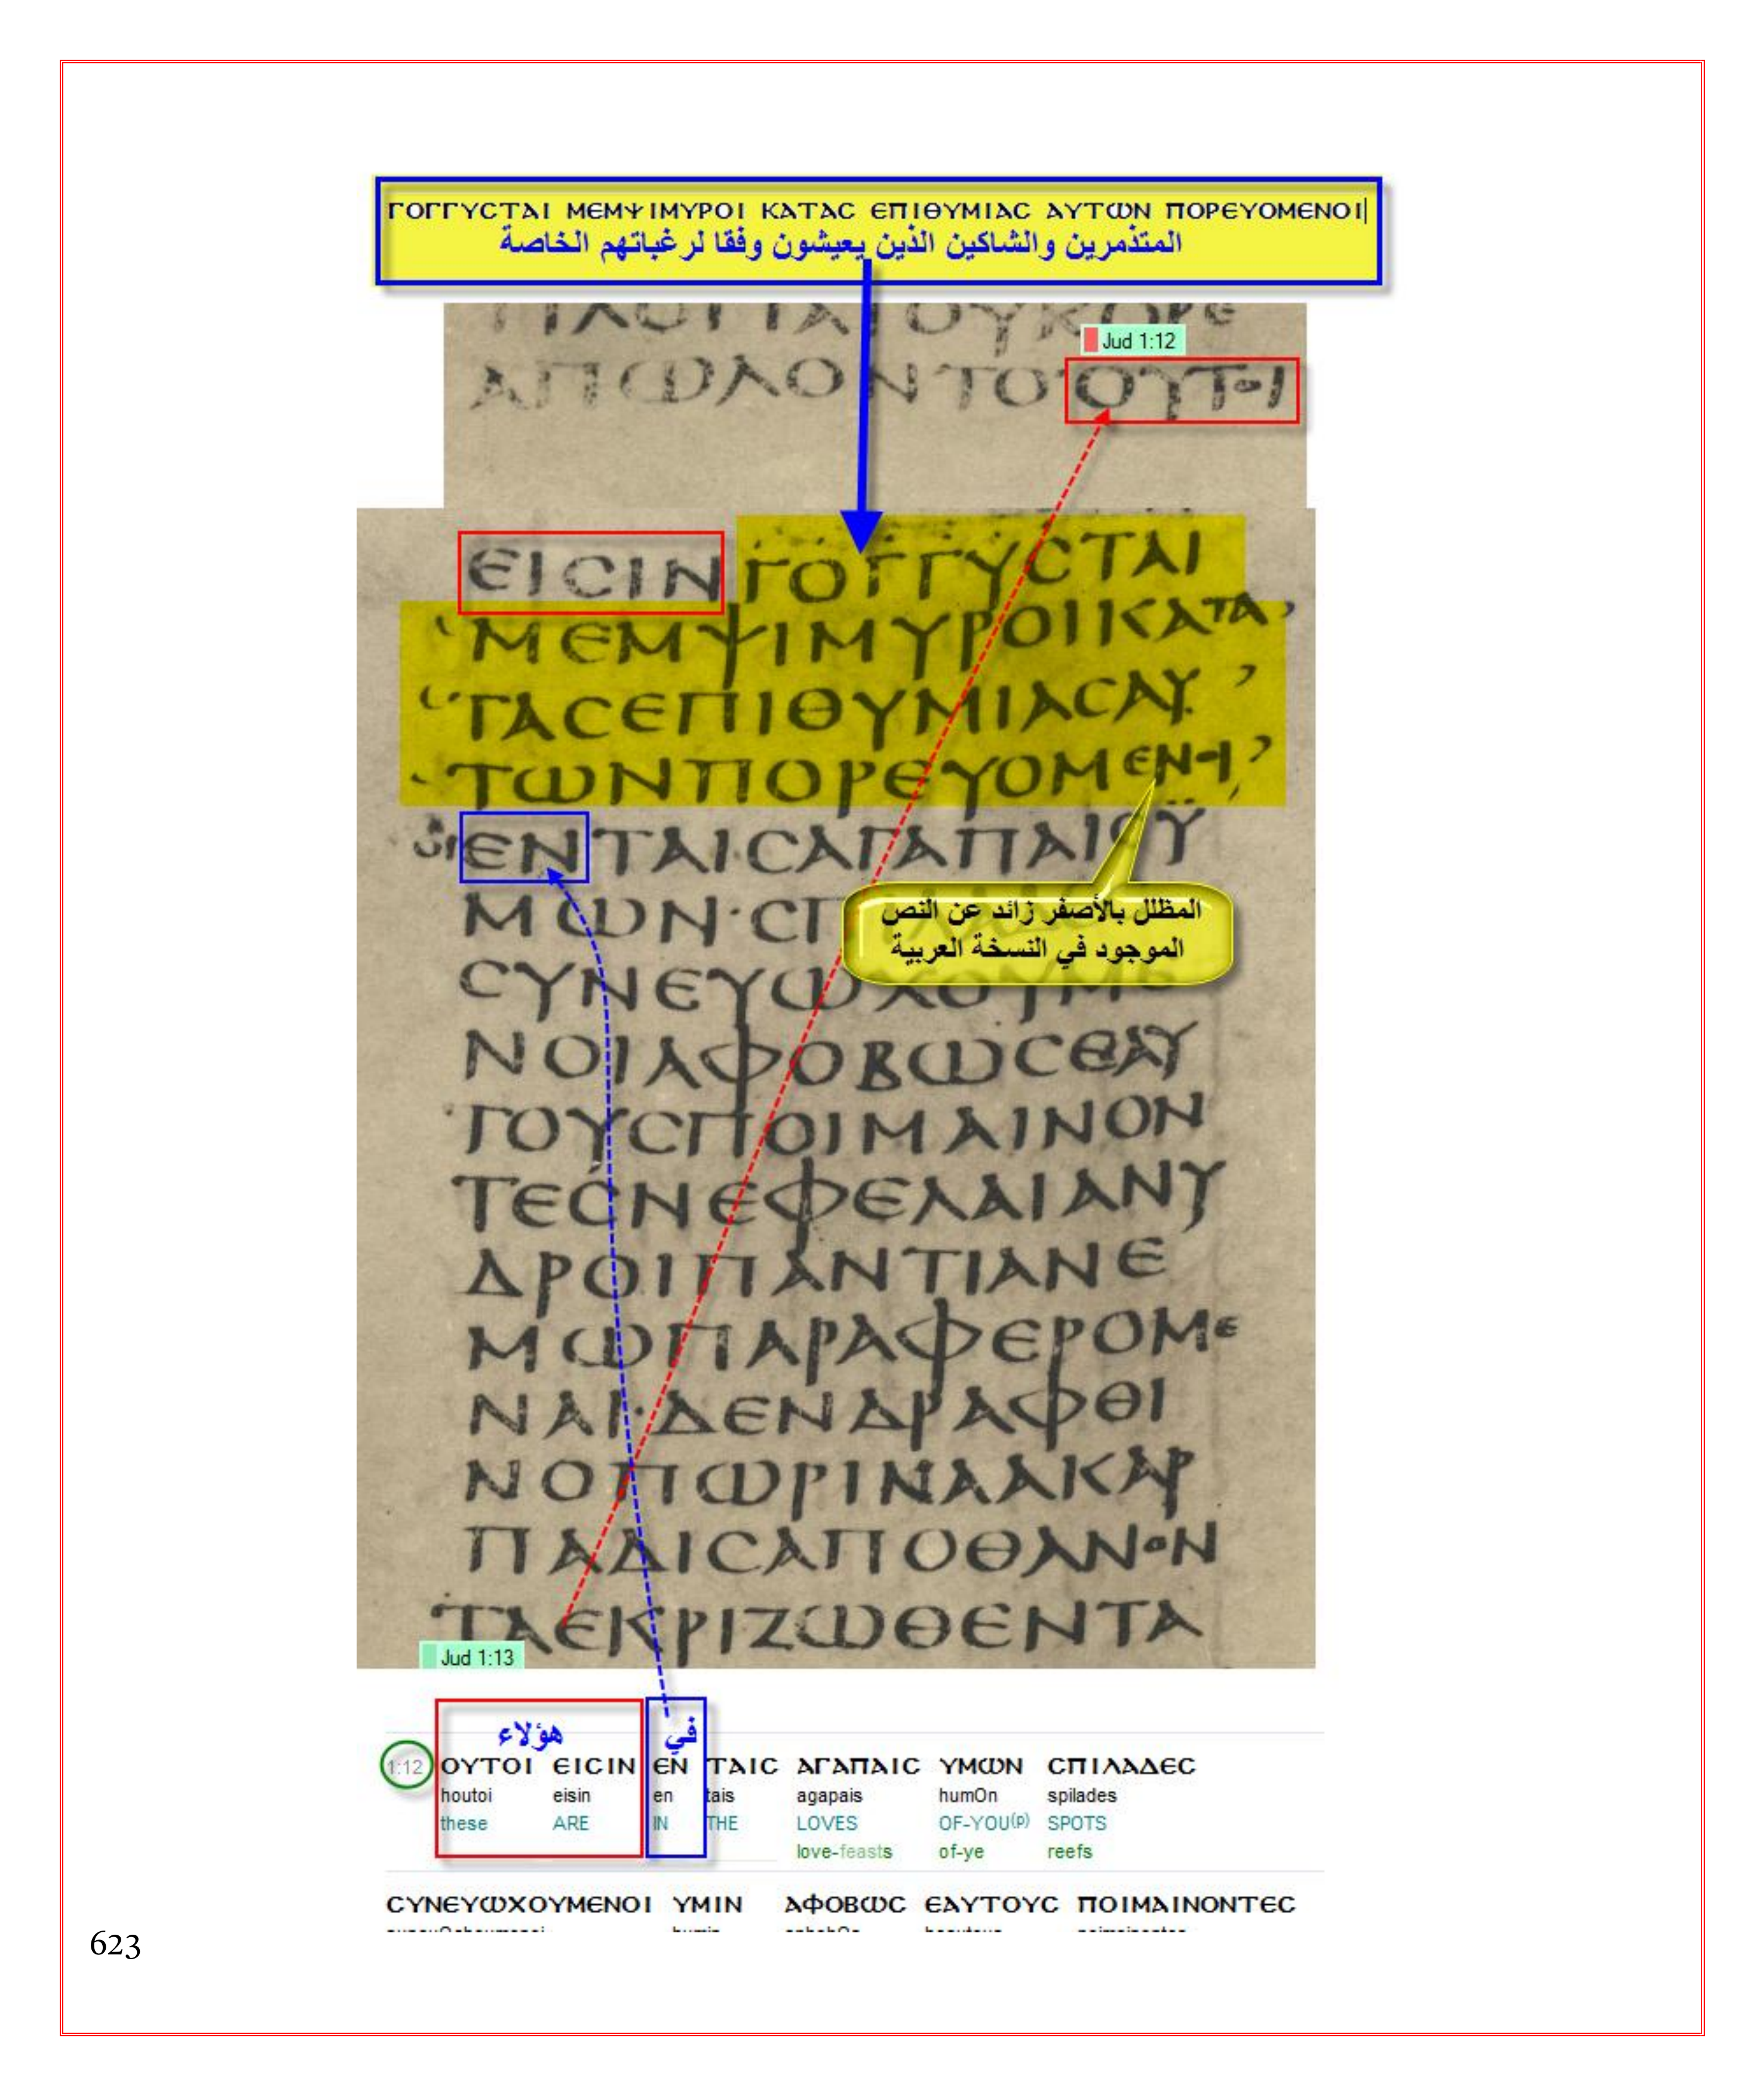 ΓΟΓΓΥϹΤΑΙ ΜΕΜΨΙΜΥΡΟΙ ΚΑΤΑϹ ΕΠΙΘΥΜΙΑϹ ΑΥΤΩΝ ΠΟΡΕΥΟΜΕΝΟΙ
المتذمرين والشاكين الذين يعيشون وفقا لرغباتهم الخاصة
Jud 1:12
ΑΠΩΛΟΝΤΟΟΥΤΟΙ
ΕΙϹΙΝΓΟΓΓΥϹΤΑΙ
ΜΕΜΨΙΜΥΡΟΙΚΑΤΑ
ΤΑϹΕΠΙΘΥΜΙΑϹΑΥ
ΤΩΝΠΟΡΕΥΟΜΕΝΟΙ
ΕΝΤΑΙϹΑΓΑΠΑΙϹΫ
ΜΩΝ·ϹΠ
المظلل بالأصفر زائد عن النص
الموجود في النسخة العربية
ϹΥΝΕΥΩΧΟΥΜΕ
ΝΟΙΑΦΟΒΩϹΕΑΥ
ΤΟΥϹΠΟΙΜΑΙΝΟΝ
ΤΕϹΝΕΦΕΛΑΙΑΝΥ
ΔΡΟΙΠΑΝΤΙΑΝΕ
ΜΩΠΑΡΑΦΕΡΟΜΕ
ΝΑΙ·ΔΕΝΔΡΑΦΘΙ
ΝΟΠΩΡΙΝΑΑΚΑΡ
ΠΑΔΙϹΑΠΟΘΑΝΟΝ
ΤΑΕΚΡΙΖΩΘΕΝΤΑ
Jud 1:13
هؤلاء في
1:12 ΟΥΤΟΙ ΕΙϹΙΝ ΕΝ ΤΑΙϹ ΑΓΑΠΑΙϹ ΥΜΩΝ ϹΠΙΛΑΔΕϹ
houtoi eisin en tais agapais humOn spilades
these ARE IN THE LOVES OF-YOU(p) SPOTS
love-feasts of-ye reefs
ϹΥΝΕΥΩΧΟΥΜΕΝΟΙ ΥΜΙΝ ΑΦΟΒΩϹ ΕΑΥΤΟΥϹ ΠΟΙΜΑΙΝΟΝΤΕϹ
623